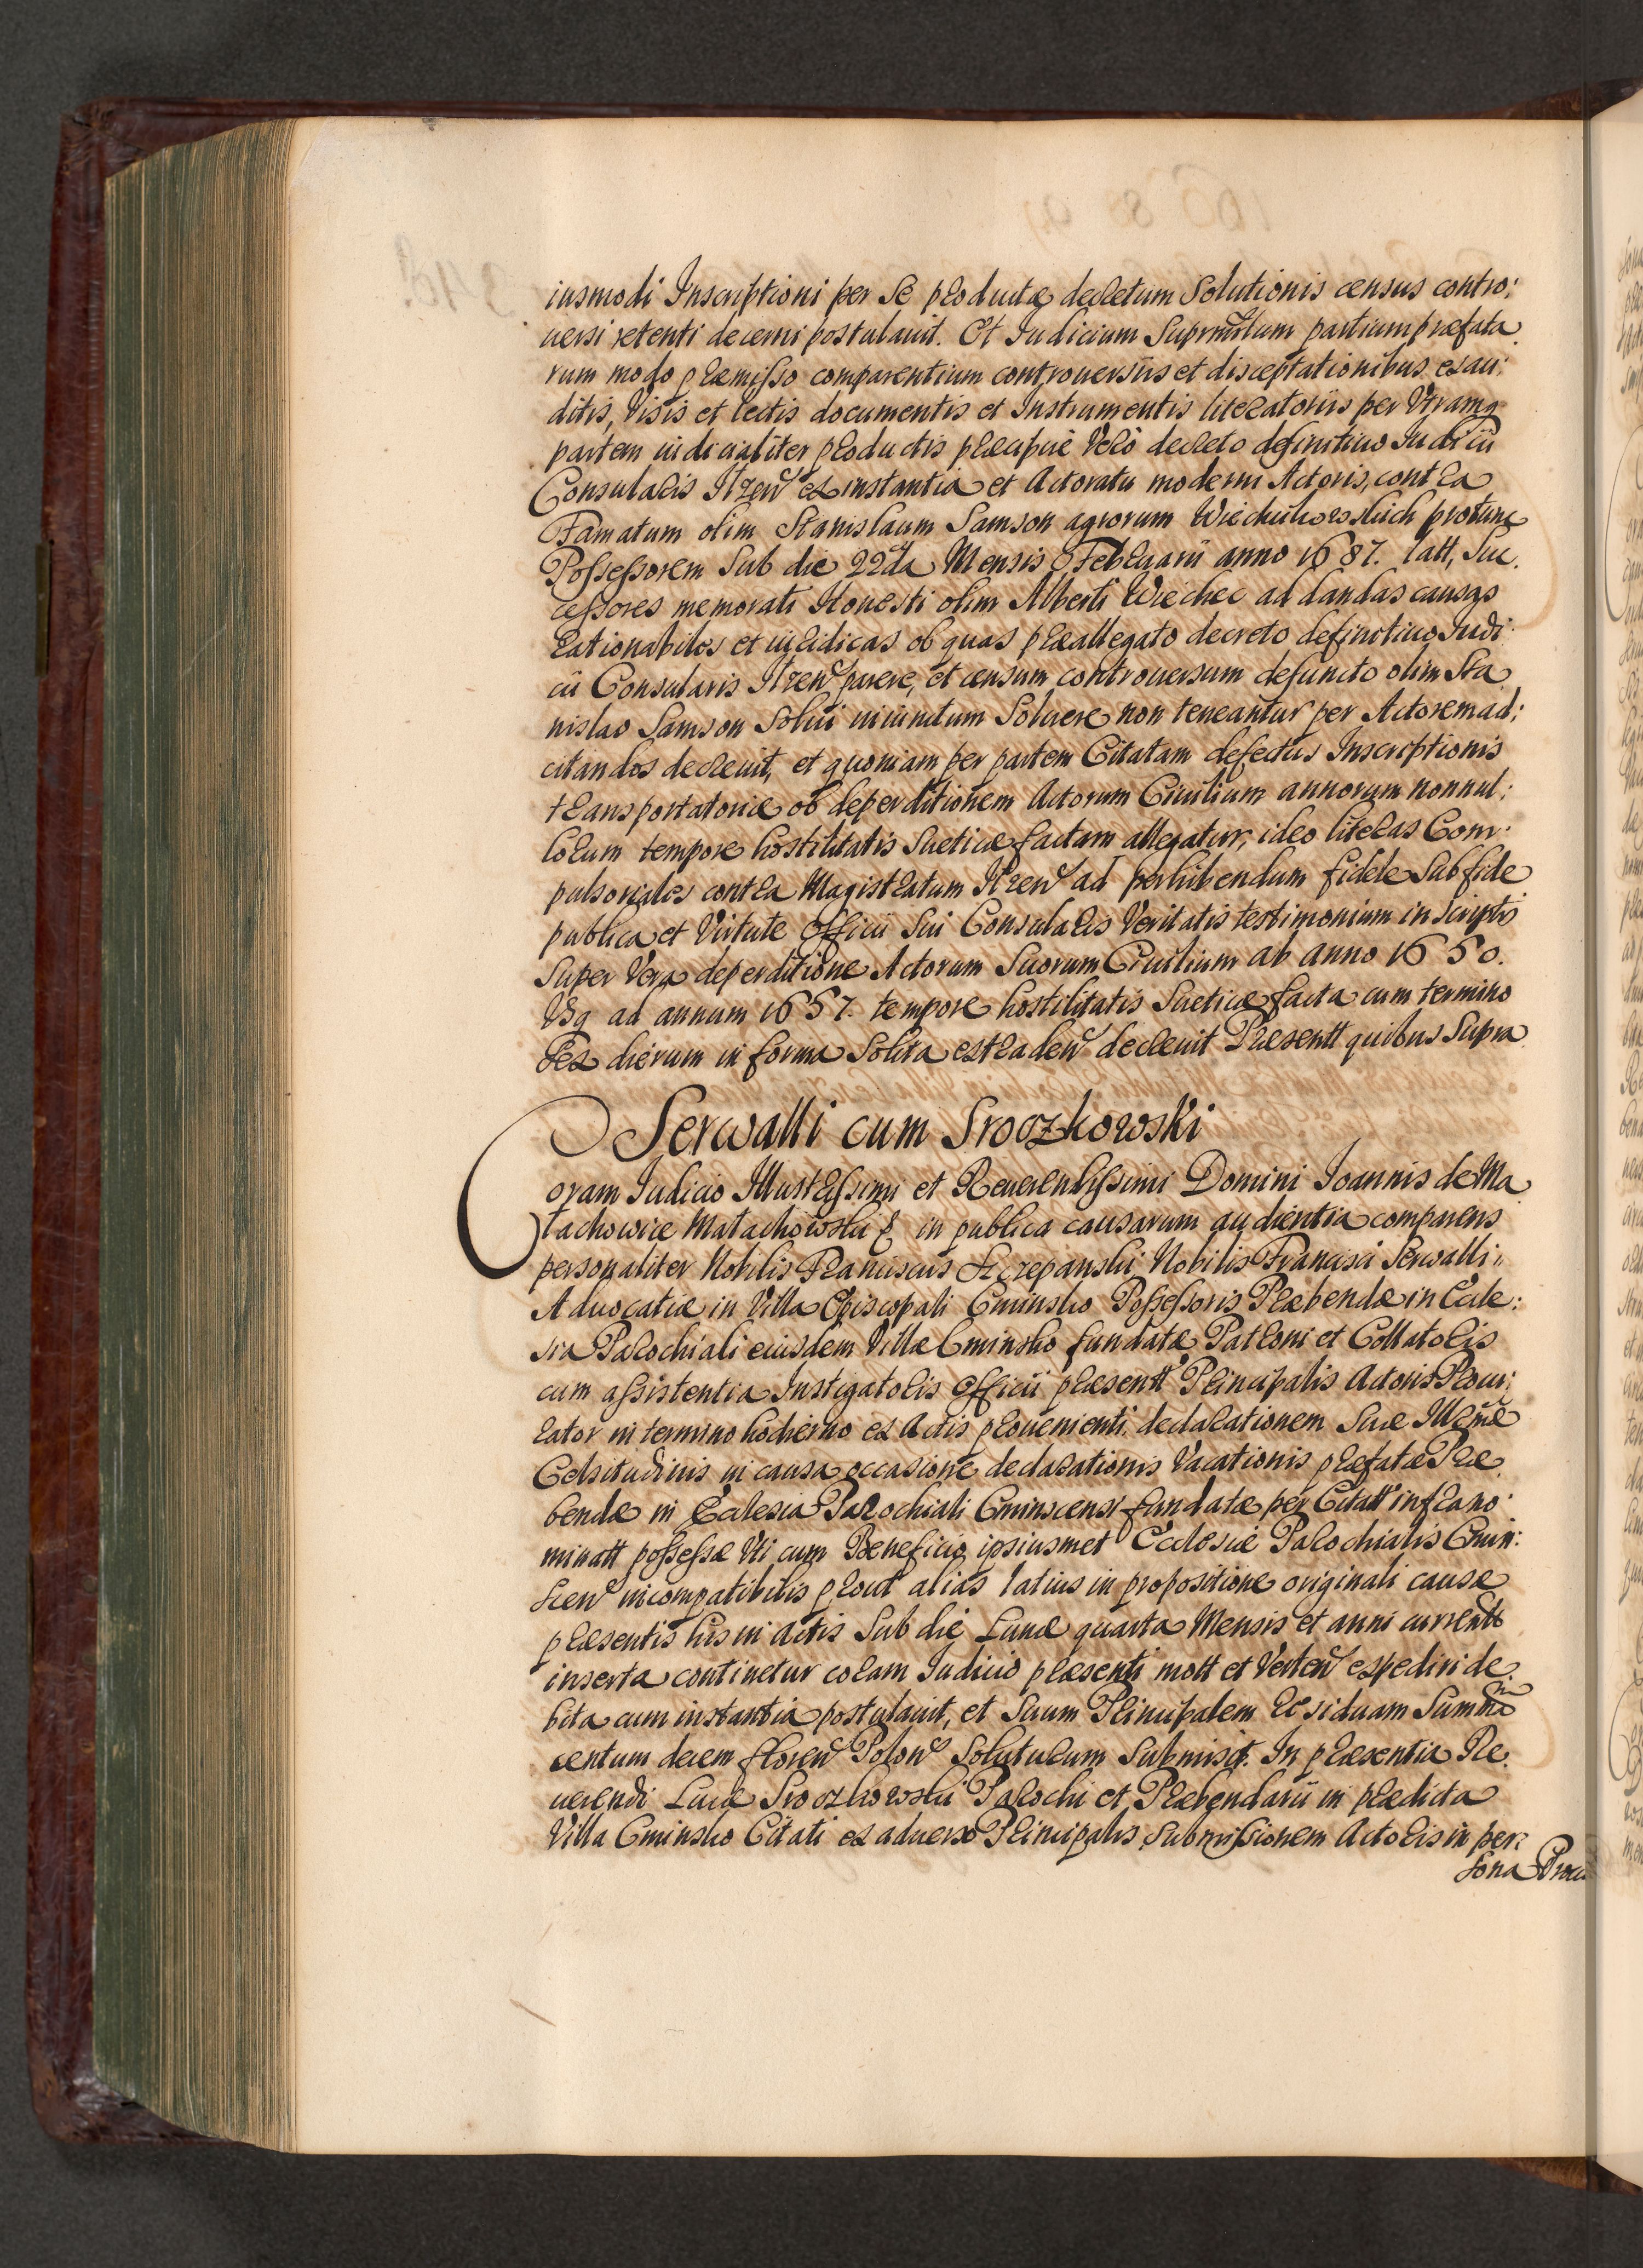 iusmodi Inscriptioni per se productæ decretum Solutionis census contro:
uersi retenti decerni postulauit. Et Iudicium Supranotatum partium præfata
rum modo præmisso comparentium controuersiis et disceptationibus exau:
ditis, Visis et lectis documentis et Instrumentis literatoriis per Vtramq
partem iudicialiter productis præcipuè Verò decreto definitiuo Iudicii
Consularis Ilzen ex instantia et Actoratu moderni Actoris, contra
Famatum olim Stanislaum Samson agrorum Wiechuikowskich protunc
Possessorem Sub die 22da Mensis Februarii anno 1687. latt, Suc
cessores memorati Honesti olim Alberti Wiechec ad dandas causas
rationabiles et iuridicas ob quas præallegato decreto definitiuo Iudi
cii Consularis Ilzen parere, et censum controuersum defuncto olim Sta
nislao Samson Solui iniunctum Soluere non teneantur per Actorem ad:
citandos decreuit, et quoniam per partem Citatam defectus Inscriptionis
transportatoriæ ob deperditionem Actorum Ciuilium annorum nonnul:
lorum tempore hostilitatis Sueticæ factam allegatur, ideo literas Com:
pulsoriales contra Magistratum Ilzen ad perhibendum fidele Sub fide
publica et Virtute Officii Sui Consularis Veritatis testimonium in Scriptis
Super Vera deperditione Actorum Suorum Ciuilium ab anno 1650.
Vsq ad annum 1657. tempore hostilitatis Sueticæ facta cum termino
Sex dierum in forma Solita extraden decreuit Præsentt quibus Supra
Serwalli cum Sroczkowski
Coram Iudicio Illustrissimi et Reuerendissimi Domini Ioannis de Ma
łachowice Małachowski & in publica causarum audientia comparens
personaliter Nobilis Franciscus Szczepanski Nobilis Francisci Serwalli
Aduocatiæ in Villa Episcopali Cminsko Possessoris Præbendæ in Eccle:
sia Parochiali eiusdem Villæ Cminsko fundatæ Patroni et Collatoris
cum assistentia Instigatoris Officii præsentt Principalis Actoris Procu:
rator in termino hodierno ex Actis prouenienti declarationem Suæ Illmæ
Celsitudinis in causa occasione declarationis Vacationis præfatæ Præ
bendæ in Ecclesia Parochiali Cminscensi fundatæ per Citatt infrano:
minatt possessæ Vti cum Beneficio ipsiusmet Ecclesiæ Parochialis Cmin:
scen incompatibilis prout alias latius in propositione originali causæ
præsentis his in Actis Sub die Lunæ quarta Mensis et anni currentt
inserta continetur coram Iudicio præsenti mott et Verten expediri de
bita cum instantia postulauit, et Suum Principalem residuam Summã
centum decem floren Polon Soluturum Submisit. In præsentia Re
uerendi Lucæ Sroczkowski Parochi et Præbendarii in prædicta
Villa Cminsko Citati ex aduerso Principalis Submissionem Actoris in per:
sona Procu